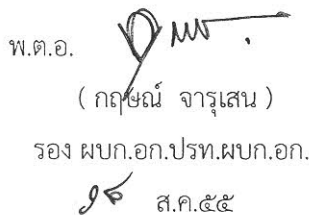 พ.ต.อ.
( กฤษณ์ จารุเสน )
รอง ผบก.อก.ปรท.ผบก.อก.
ส.ค.๕๕